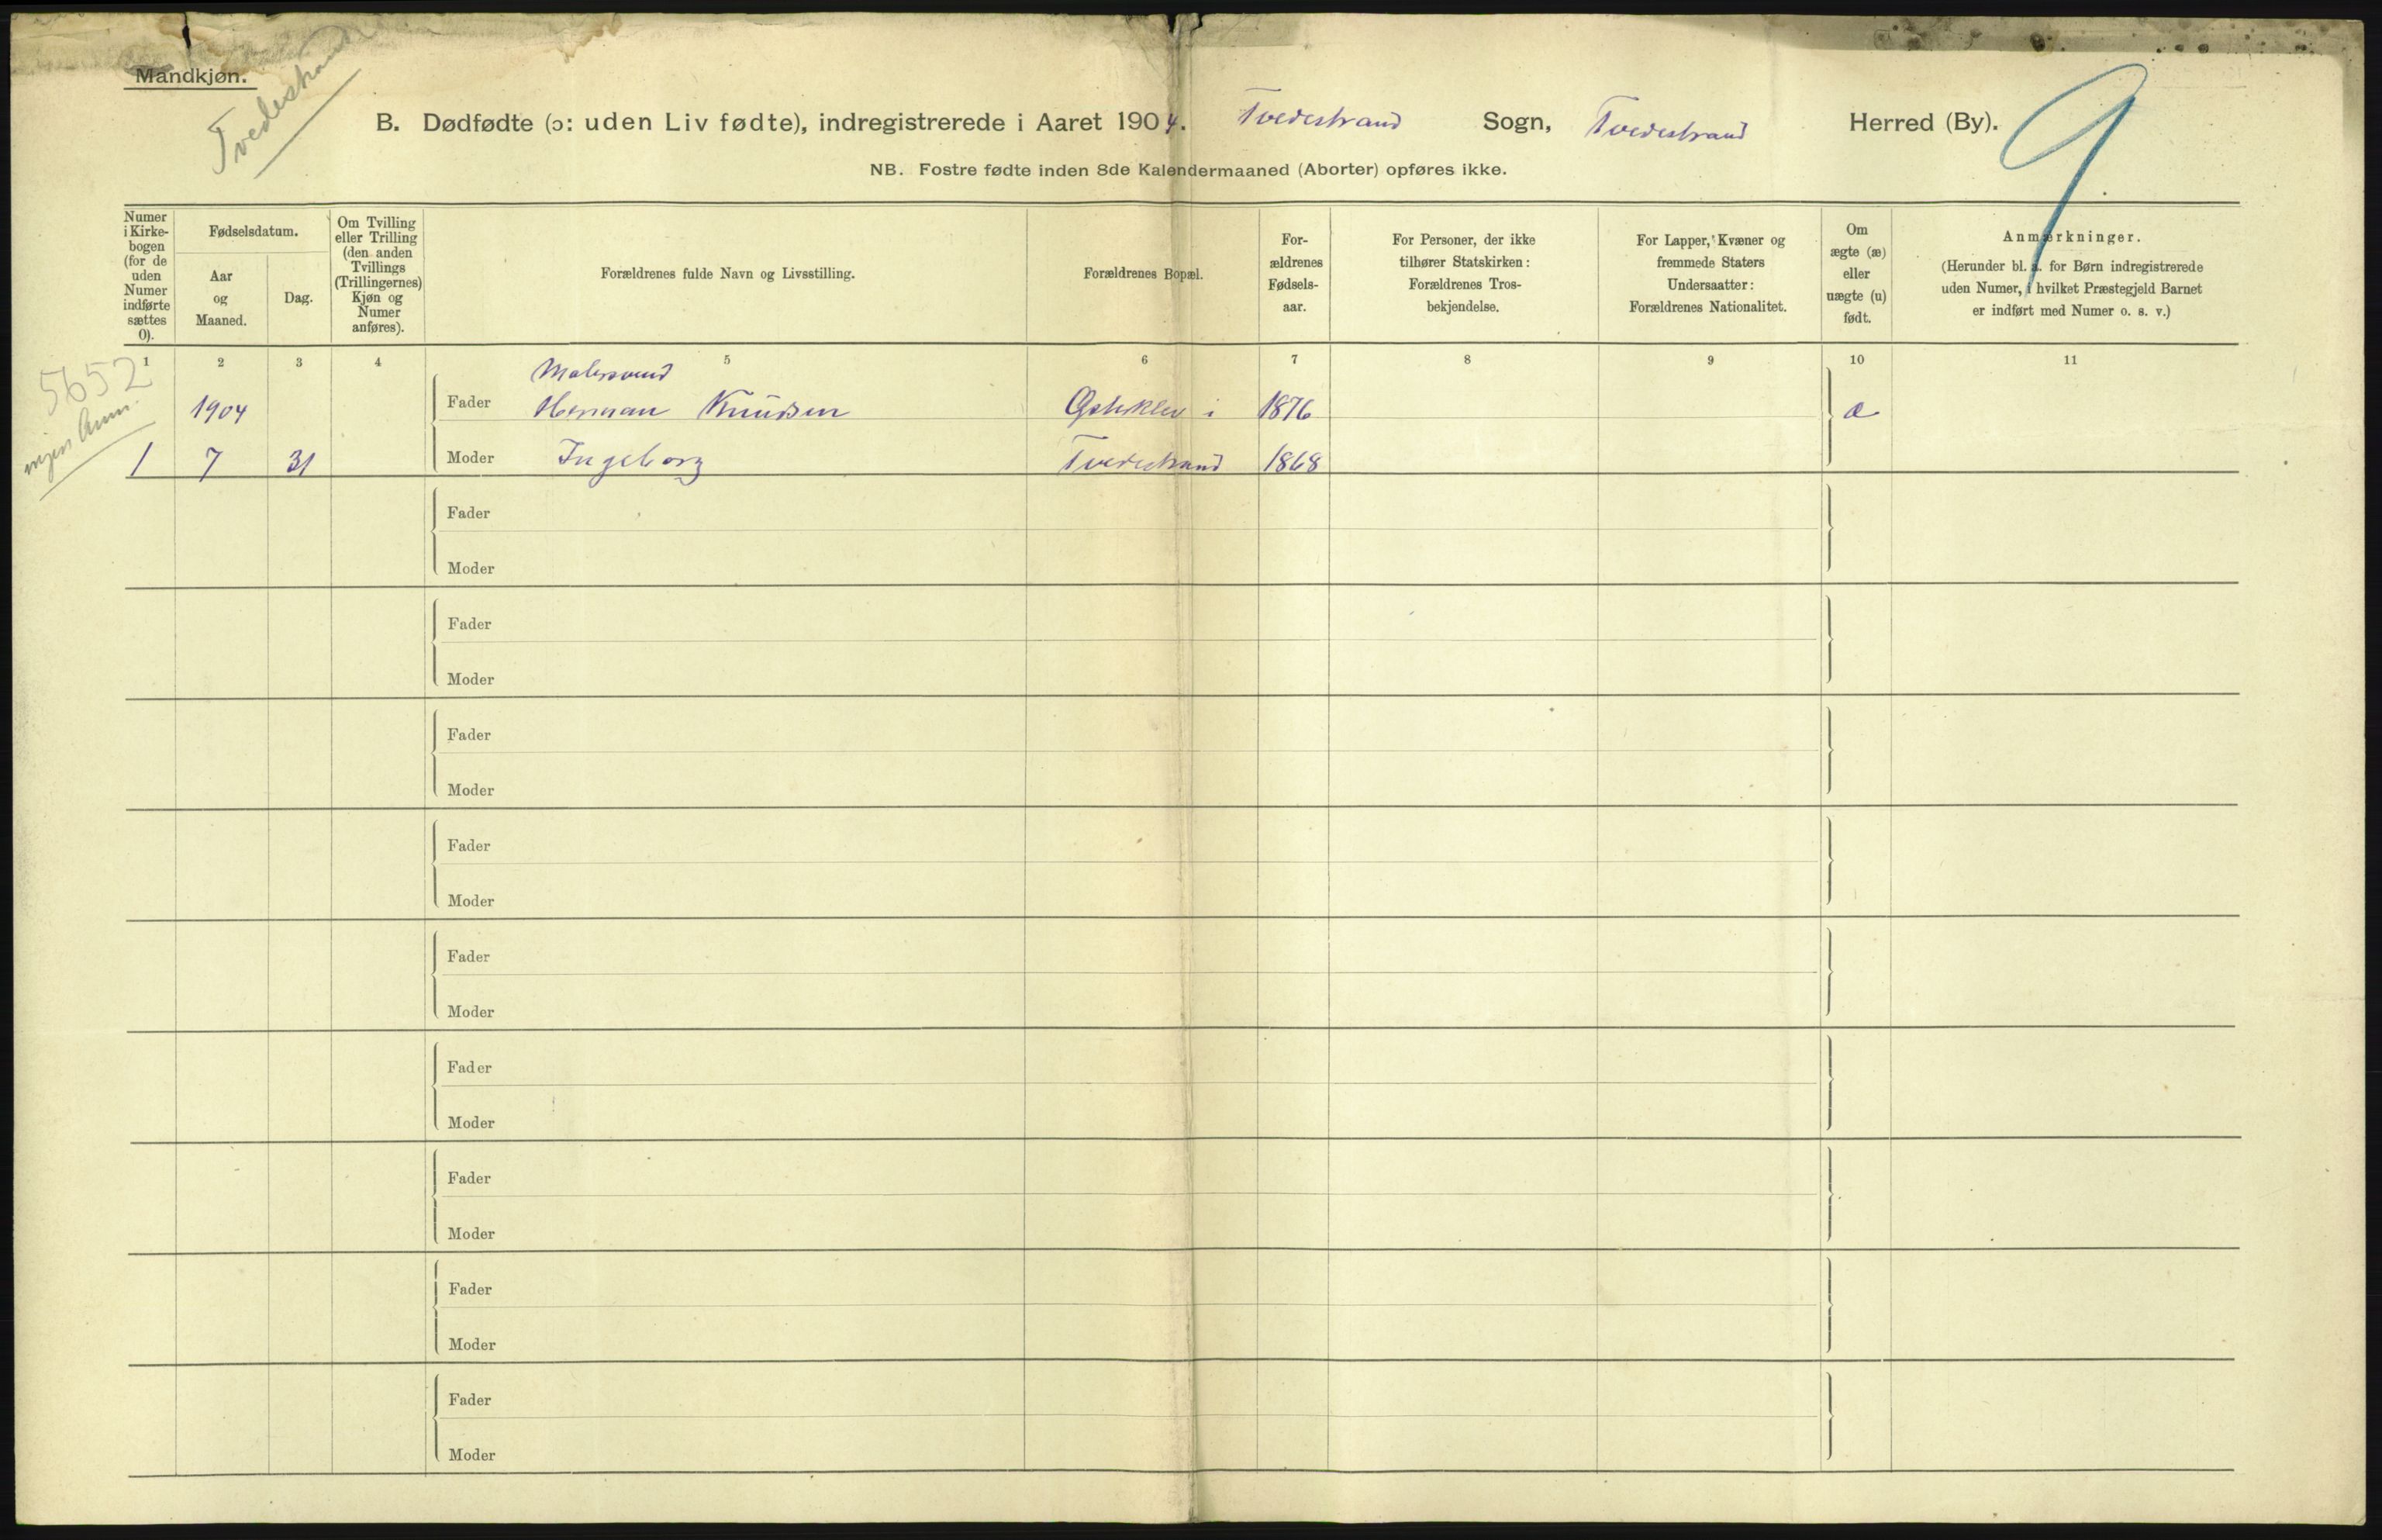 Mandkjøn.
Tvedestrand
B. Dødfødte (ɔ: uden Liv fødte), indregistrerede i Aaret 1904. Tvedestrand Sogn, Tvedestrand Herred (By).
9
NB. Fostre fødte inden 8de Kalendermaaned (Aborter) opføres ikke.
Numer i Kirkebogen (for de uden Numer indførte sættes 0).
Fødselsdatum.
Aar og Maaned.
Dag.
Om Tvilling eller Trilling (den anden Tvillings (Trillingernes) Kjøn og Numer anføres).
Forældrenes fulde Navn og Livsstilling.
Forældrenes Bopæl.
For-
ældrenes
Fødsels-
aar.
For Personer, der ikke
tilhører Statskirken:
Forældrenes Tros-
bekjendelse.
For Lapper, Kvæner og
fremmede Staters
Undersaatter:
Forældrenes Nationalitet.
Om
ægte (æ)
eller
uægte (u)
født.
Anmærkninger.
(Herunder bl. a. for Børn indregistrerede
uden Numer, i hvilket Præstegjeld Barnet
er indført med Numer o. s. v.)
1 2 3 4 5 6 7 8 9 10 11
5652
Anm.
1904 Fader Herman Knudsen i 1876 æ
1 7 31 Moder Ingeborg Tvedestrand 1868
Fader
Moder
Fader
Moder
Fader
Moder
Fader
Moder
Fader
Moder
Fader
Moder
Fader
Moder
Fader
Moder
Fader
Moder